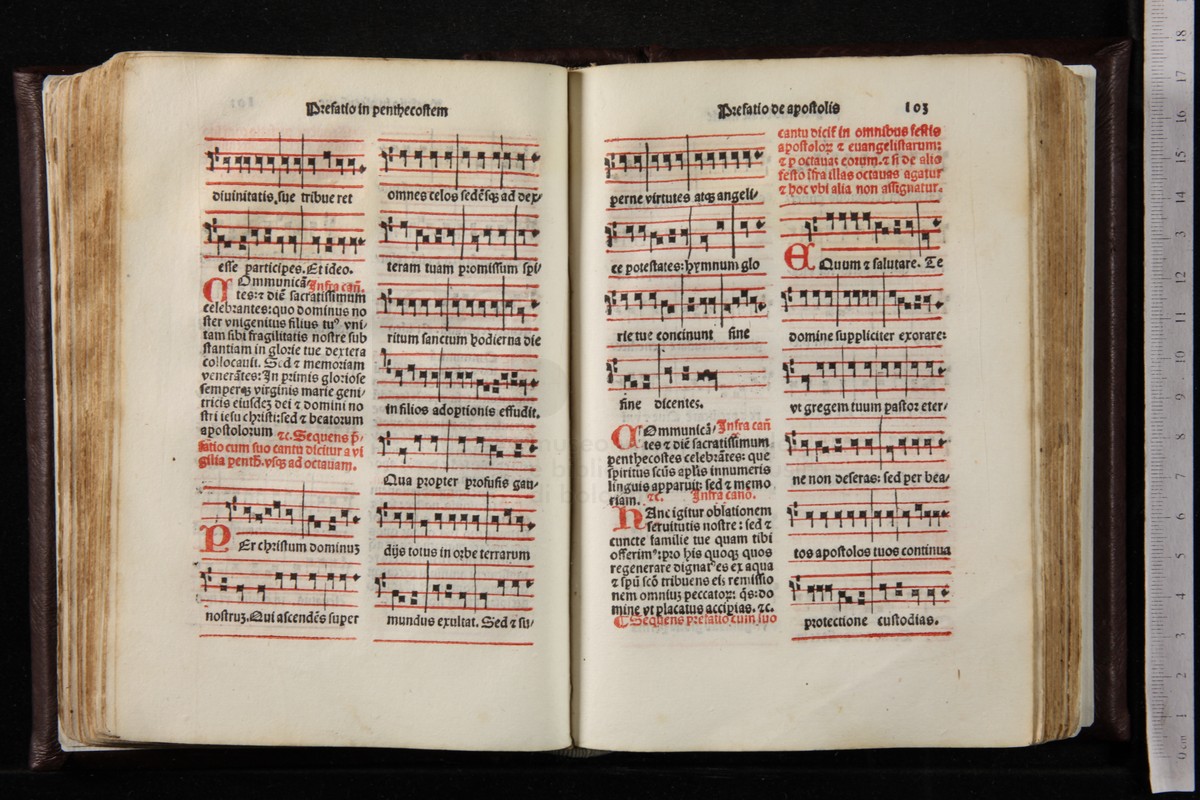 Prefatio in penthecostem
diuinitatis sue tribue ret
esse participes. Et ideo.
COmmunicã⸗ Infra cañ.
tes: ⁊ diẽ sacratissimum
celebrantes: quo dominus no
ster vnigenitus filius tuꝰ vni⸗
tam sibi fragilitatis nostre sub
stantiam in glorie tue dextera
collocauit. Sed ⁊ memoriam
venerãtes: In primis gloriose
semperqꝫ virginis marie geni
tricis eiusdẽ dei ⁊ domini no
stri iesu christi: sed ⁊ beatorum
apostolorum ⁊c. Sequens p̃⸗
fatio cum suo cantu dicitur a vi
gilia penth. vsqꝫ ad octauam.
PEr christum dominuꝫ
nostruꝫ. Qui ascendẽs super
omnes celos sedẽsqꝫ ad dex⸗
teram tuam promissum spi⸗
ritum sanctum hodierna die
in filios adoptionis effudit.
Qua propter profusis gau⸗
dijs totus in orbe terrarum
mundus exultat. Sed ⁊ su⸗
Prefatio de apostolis 103
perne virtutes atqꝫ angeli⸗
ce potestates: hymnum glo
rie tue concinunt sine
fine dicentes.
COmmunicã⸗ Infra cañ
tes ⁊ diẽ sacratissimum
penthecostes celebrãtes: quo
spiritus scũs apl̃is innumeris
linguis apparuit: sed ⁊ memo
riam. ⁊c. Infra cano.
HAnc igitur oblationem
seruitutis nostre: sed ⁊
cuncte familie tue quam tibi
offerimꝰ: pro his quoqꝫ quos
regenerare dignatꝰ es ex aqua
⁊ spũ scõ tribuens eis remissio
nem omniuꝫ peccatoꝝ: q̃s: do
mine vt placatus accipias. ⁊c.
¶ Sequens prefatio cum suo
cantu dicit̃ in omnibus festis
apostoloꝝ ⁊ euangelistarum:
⁊ ꝑ octauas eorum. ⁊ si de alio
festo ĩfra illas octauas agatur
⁊ hoc vbi alia non assignatur.
EQuum ⁊ salutare. Te
domine suppliciter exorare:
vt gregem tuum pastor eter⸗
ne non deseras: sed per bea⸗
tos apostolos tuos continua
protectione custodias.